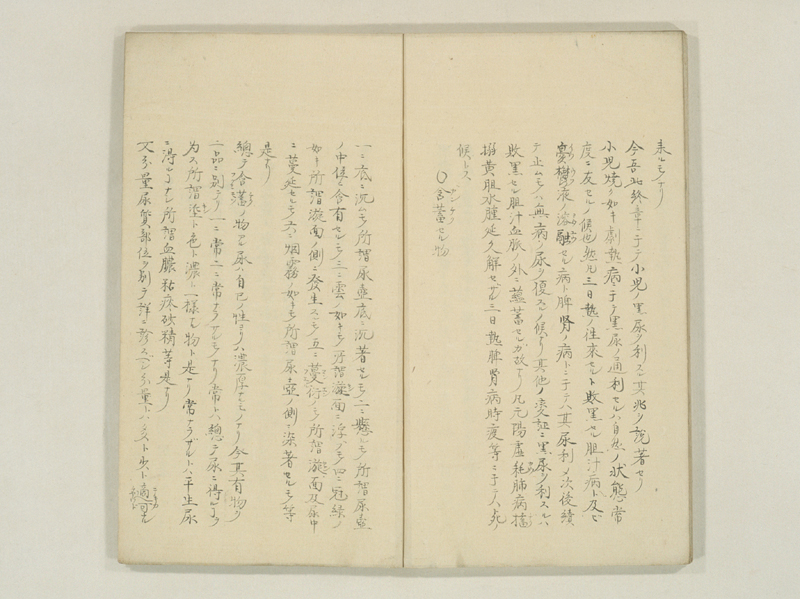 来ルモノナリ
今吾此終章ニ于テ小児ノ黒尿ヲ利スル其兆ノ説著セリ
小児焼ク如キ劇熱病ニ于テ黒尿ノ通利セルハ自然ノ状態常
度ニ反セルノ候也然ルニ三日熱ノ往来セルト敗黒セル胆汁病ト及ビ
鬱液ノ溶融セル病ト脾腎ノ病トニ于テハ其尿利メ次後續
テ止ムモノハ無病ノ尿ヲ復スルノ候ナリ其他ノ凌証ニ黒尿ヲ利スルハ
敗黒セル胆汁血脈ノ外ニ蓋蓄セルガ故ナリ凡元陽虚耗肺病搐
搦黄胆水腫延久解セザル三日熱脾腎病時疫等ニ于テハ死ノ
候トス
〇含蓄セル物
一ニ底ニ沉ムモノ所謂尿壺底ニ沉著セルモノニニ懸ルモノ所謂尿壺
ノ中位ニ含有セルモノ三ニ雲ノ如キモノ所謂漩面ニ浮ハモノ四ニ冠緣ノ
如キ所謂漩面ノ側ニ發生スルモノ五ニ蔓衍ノモノ所謂漩面及尿中
ニ蔓延セルモノ六ニ烟霧ノ如キモノ所謂尿壺ノ側ニ染著セルモノ等
是ナリ
總テ含蓄ノ物アル尿ハ自己ノ性ヨリハ濃厚ナルモノナリ今其有物ヲ
二品ニ別ツナリ一ニ常ニニ常ナラザルモノナリ常トハ總テ尿ニ得ヘシ
為ス所謂漩ト色ト濃ト一様ナル物ト是ナリ常ナラザルトハ平生尿
ニ得ルナシ所謂血膿粘痰砂精等是ナリ
又分量尿質部位ヲ別テ詳ニ診スベシ分量トハ多ト少ト適可ナル